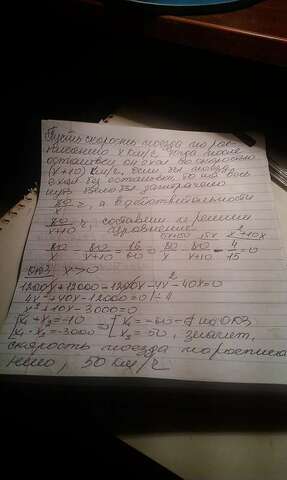 Пусть скорость поезда по рас-
писанию x км/ч, тогда после
остановки он ехал со скоростью
(x+10) км/ч, если бы поезд
ехал без остановки, то на весь
путь было бы затрачено
80/x ч, а в действительности
80/x+10 ч, составим и решим
уравнение
80/x - 80/x+10 = 16/60 80/x - 80/x+10 - 4/15 = 0
ОДЗ: x>0
1200x+12000-1200x-4x²-40x=0
4x²+40x-12000=0 |÷4
x²+10x-3000=0
x₁+x₂=-10 x₁=-60
x₁·x₂=-3000 x₂=50, значит,
скорость поезда по расписа
нию, 50 км/ч